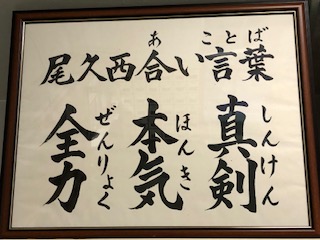 尾久西合い言葉
あ こと ば
真剣
しんけん
本気
ほんき
全力
ぜんりょく